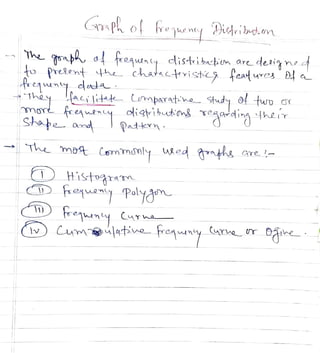 Graph of Frequency Distribution
→ The graph of frequency distribution are designed
to present the characteristics features of a
frequency data.
→ They facilitate Comparative study of two or
more frequency distributions regarding their
Shape and pattern.
→ The most Commonly used graphs are :-
I Histogram
II Frequency Polygon
III Frequency Curve
IV Cumulative frequency Curve or Ogive.